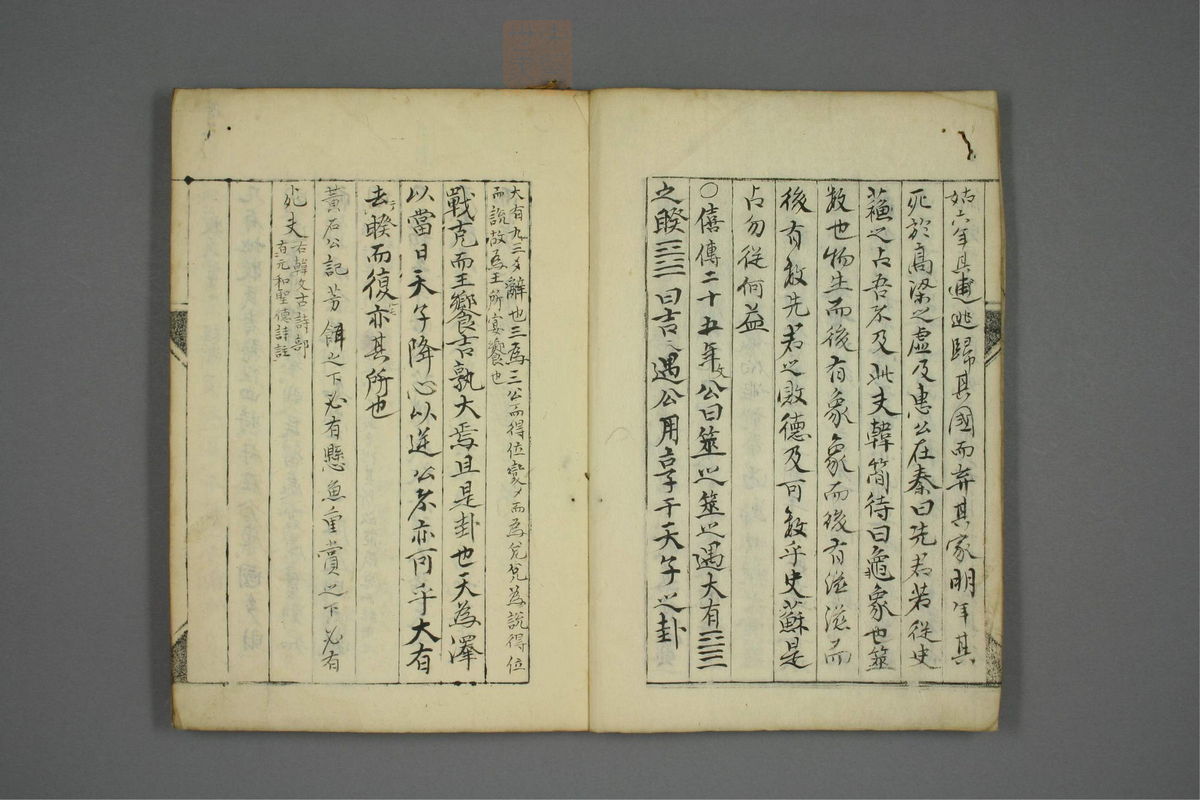 姑六年其逋逃歸其國而弃其家明年其
死於高梁之虛及惠公在秦曰先君若從史
蘇之占吾不及此夫韓簡待曰龜象也筮
數也物生而後有象象而後有滋滋而
後有數先君之敗德及可數乎史蘇是
占勿從何益
○僖傳二十五年文公曰筮之筮之遇大有䷍
之睽䷥曰吉遇公用享于天子之卦
大有九三爻辭也三為三公而得位變而為兌兌為說得位
而說故為王所宴饗也
戰克而王饗吉孰大焉且是卦也天為澤
以當日天子降心以逆公不亦可乎大有
去睽而復亦其所也
黃石公記芳餌之下必有懸魚重賞之下必有
死夫
右韓文古詩部
元和聖德詩註